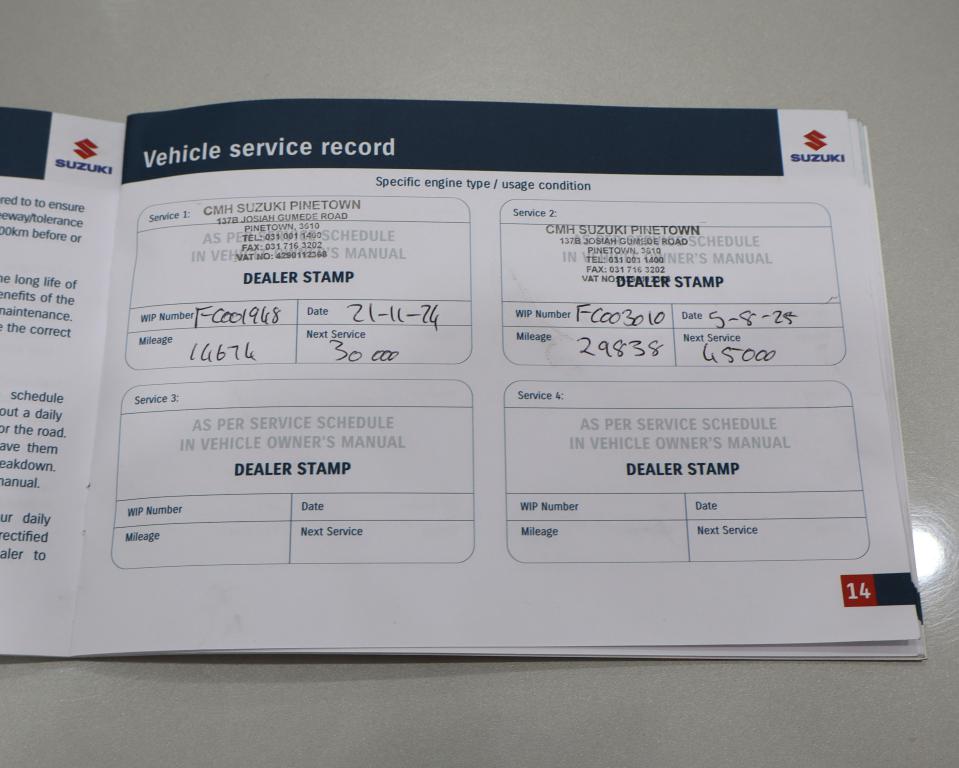 SUZUKI
red to to ensure
eeway/tolerance
00km before or
ne long life of
enefits of the
maintenance.
e the correct
schedule
out a daily
or the road.
ave them
eakdown.
manual.
ur daily
rectified
aler to
Vehicle service record
SUZUKI
Specific engine type / usage condition
Service 1:
CMH SUZUKI PINETOWN
137B JOSIAH GUMEDE ROAD
PINETOWN, 3610
TEL: 031 001 1400
FAX: 031 716 3202
VAT NO: 4290112368
AS PER SERVICE SCHEDULE
IN VEHICLE OWNER'S MANUAL
DEALER STAMP
WIP Number FC001948 Date 21-11-24
Mileage 14674 Next Service 30 000
Service 2:
CMH SUZUKI PINETOWN
137B JOSIAH GUMEDE ROAD
PINETOWN, 3610
TEL: 031 001 1400
FAX: 031 716 3202
VAT NO:
SCHEDULE
IN VEHICLE OWNER'S MANUAL
DEALER STAMP
WIP Number FC003010 Date 5-8-25
Mileage 29838 Next Service 45000
Service 3:
AS PER SERVICE SCHEDULE
IN VEHICLE OWNER'S MANUAL
DEALER STAMP
WIP Number Date
Mileage Next Service
Service 4:
AS PER SERVICE SCHEDULE
IN VEHICLE OWNER'S MANUAL
DEALER STAMP
WIP Number Date
Mileage Next Service
14